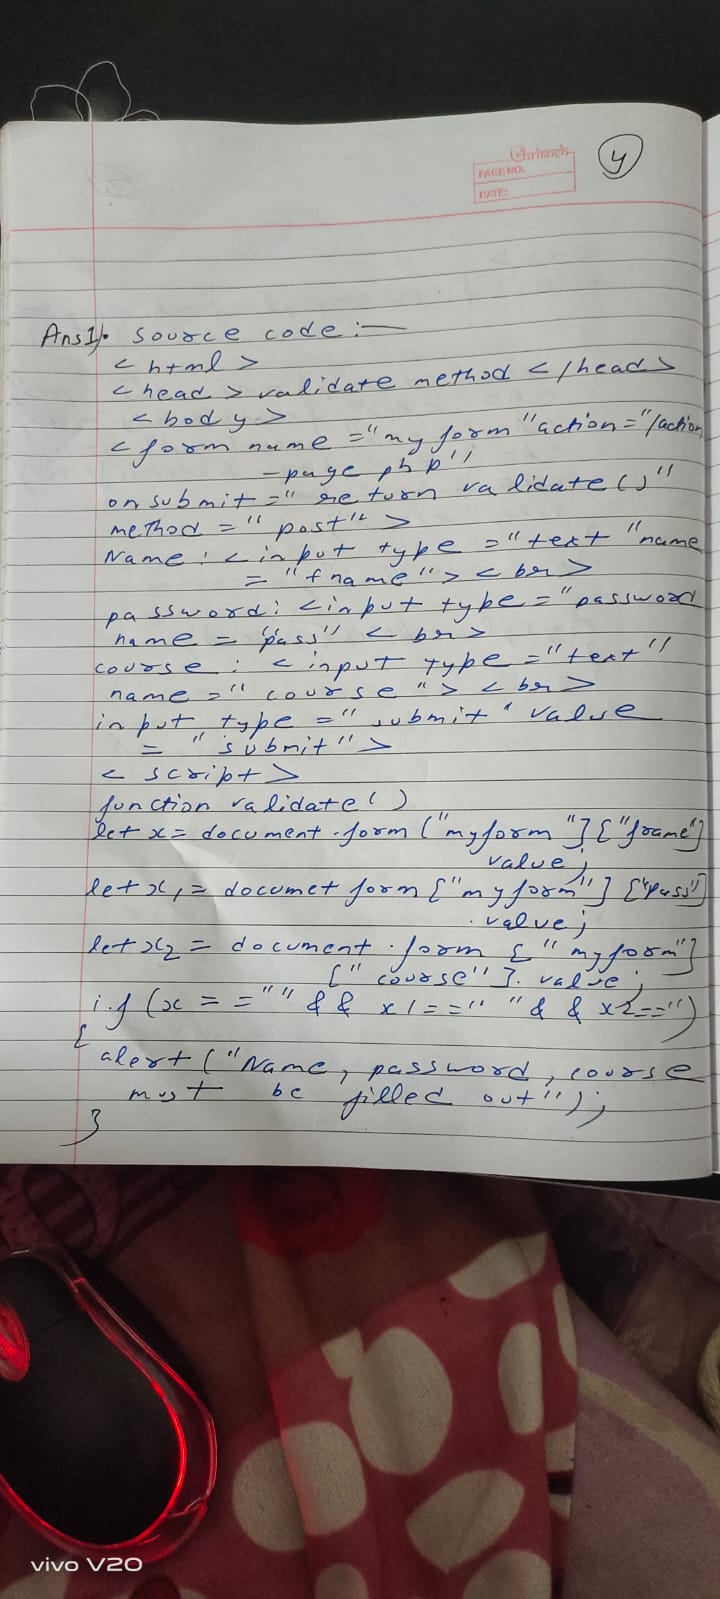 Shriansh
PAGE NO.
DATE:
4
Ans1). Source code :-
< html >
< head > validate method < /head >
< body >
< form name = "my form" action = "/action
- page php";
on submit = " return validate ( ) "
method = " post" >
Name : < input type = " text " name
= " fname " > < br >
password : < input type = " password
name = "pass" < br >
course : < input type = " text "
name = " course " > < br >
input type = " submit " value
= " submit " >
< script >
function validate ( )
let x = document . form ("myform "] ["fname"]
value ;
let x1 = documet form ["my form"] ["pass"]
. value ;
let x2 = document . form [ " myform"]
[" course"] . value ;
if (x = = " " & & x1 == " " & & x2 == ")
{
alert ( "Name, password, course
must be filled out" ) ;
}
vivo V20